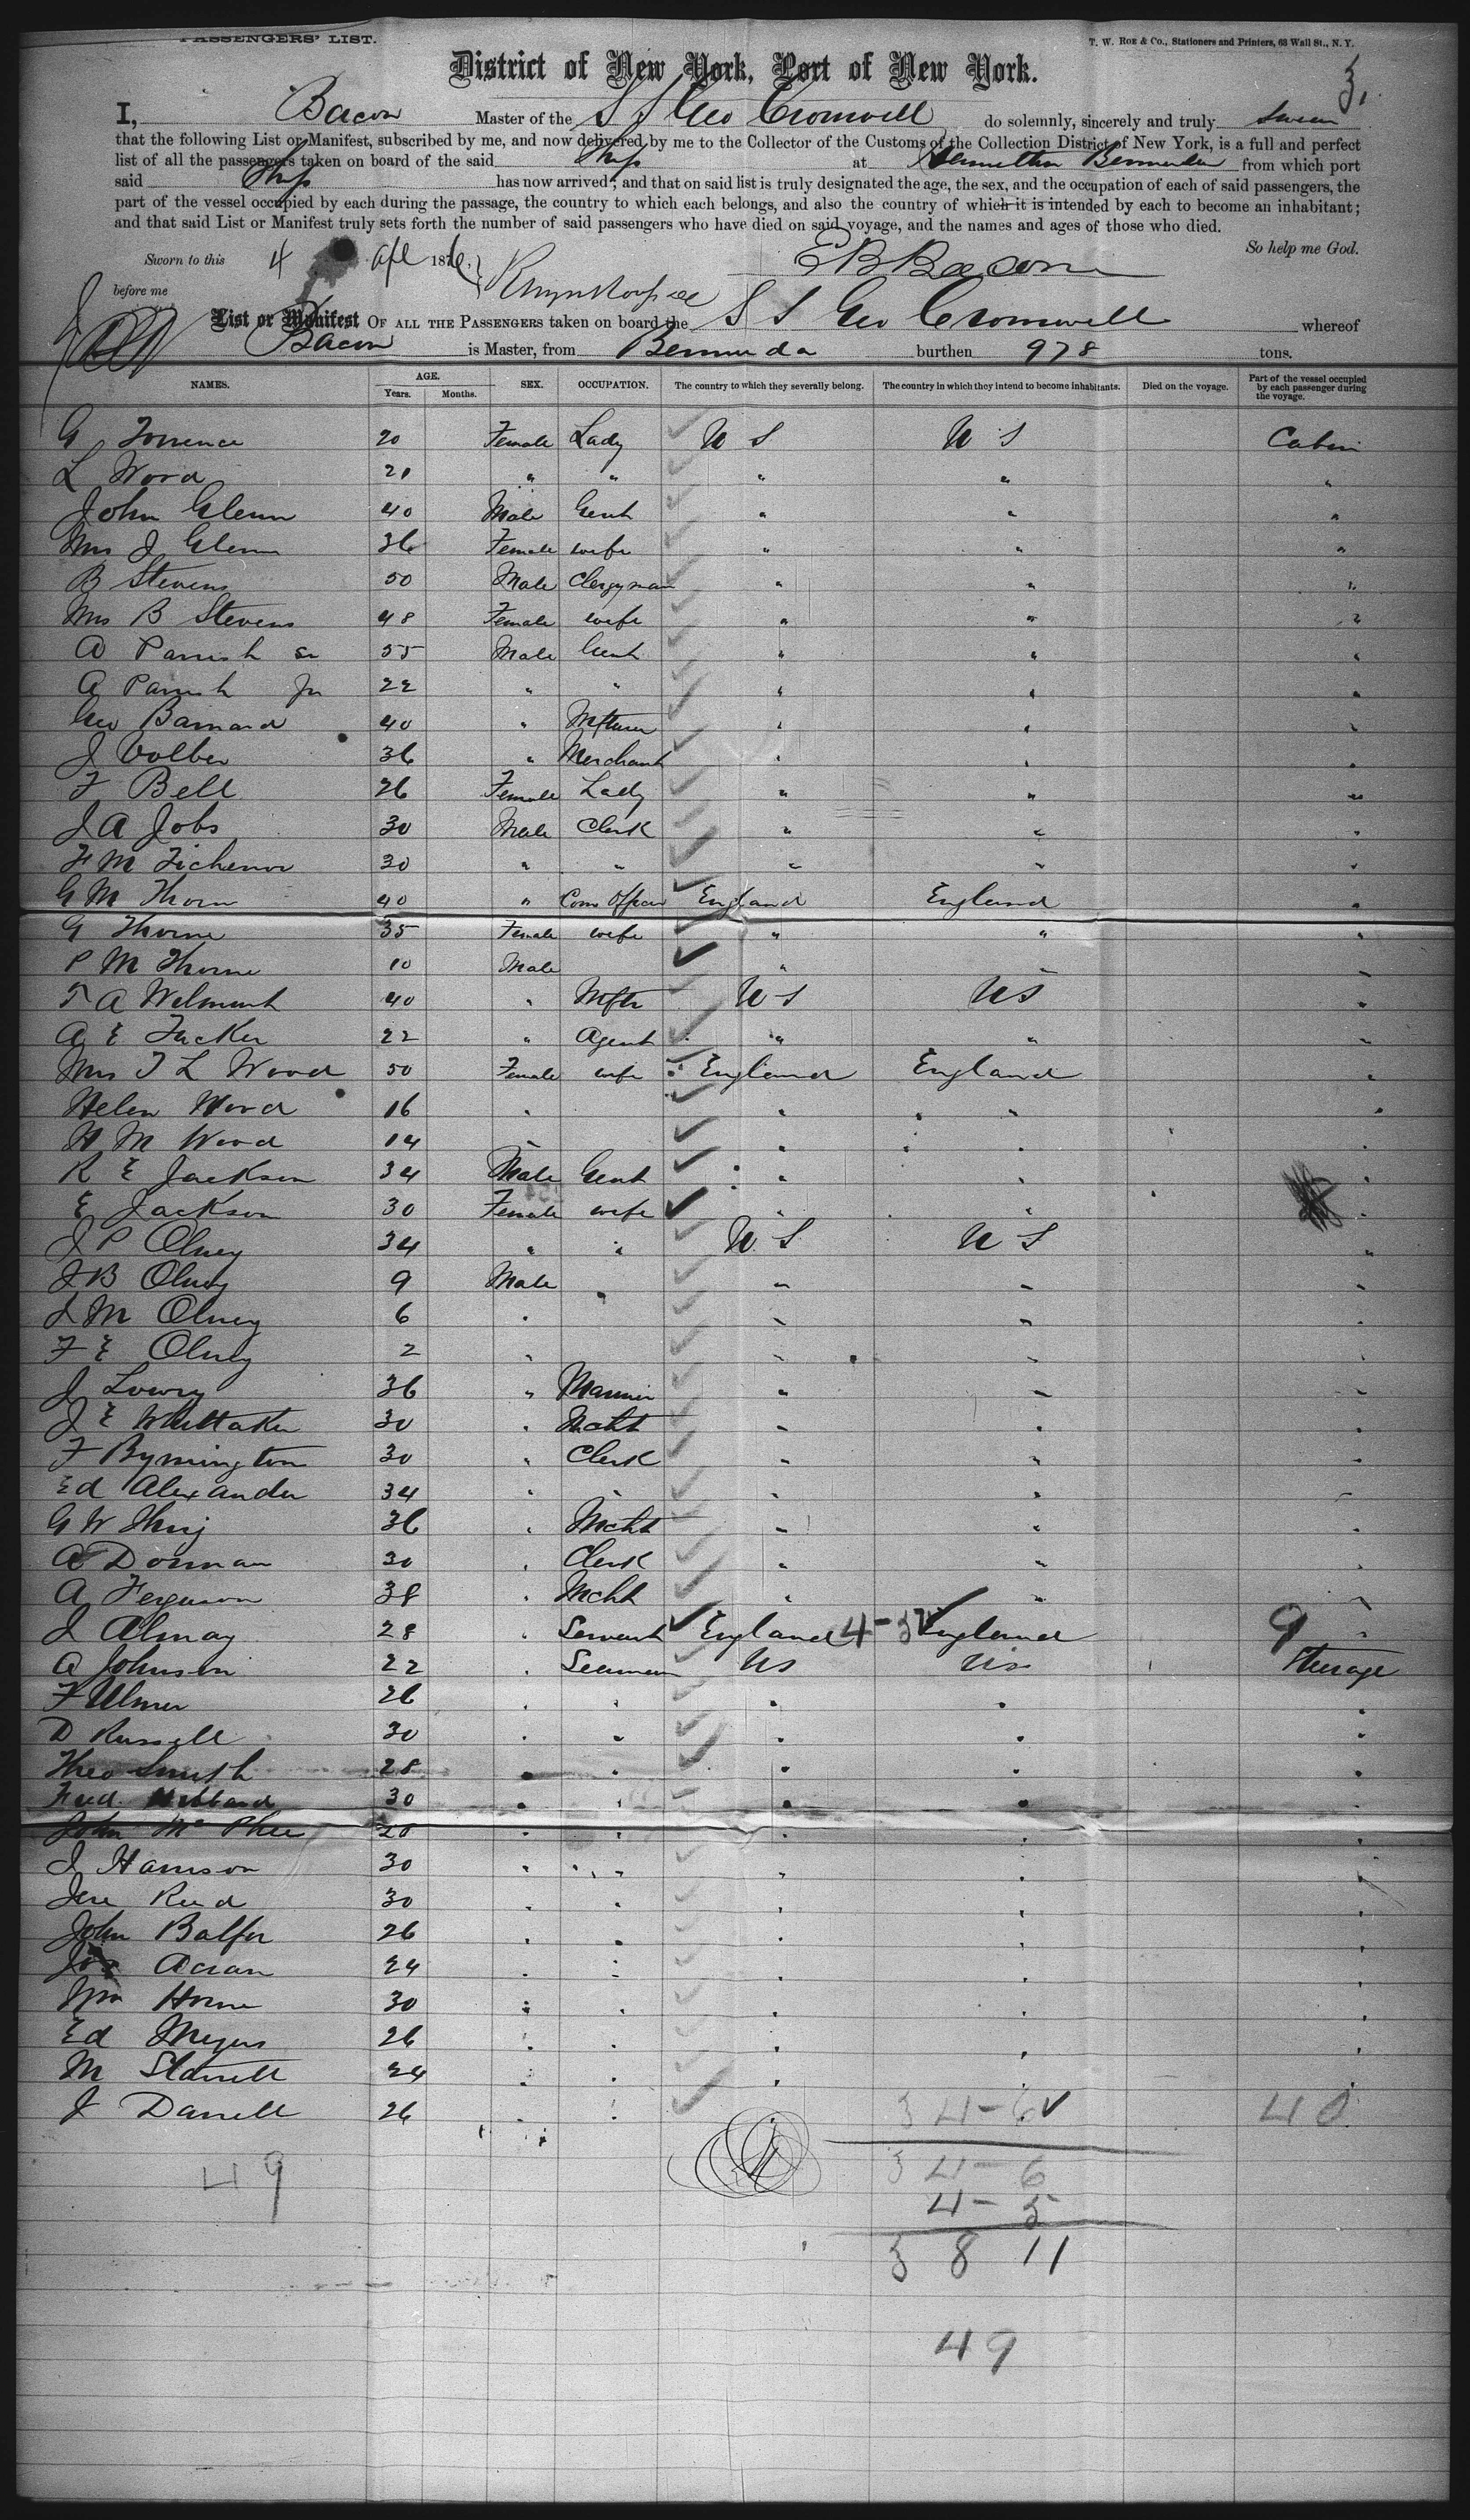 PASSENGERS' LIST.
T. W. ROE & Co., Stationers and Printers, 63 Wall St., N. Y.
3.
District of New York, Port of New York.
I, Bacon Master of the S S Geo Cromwell do solemnly, sincerely and truly swear
that the following List or Manifest, subscribed by me, and now delivered by me to the Collector of the Customs of the Collection District of New York, is a full and perfect
list of all the passengers taken on board of the said Ship at Hamilton Bermuda from which port
said Ship has now arrived; and that on said list is truly designated the age, the sex, and the occupation of each of said passengers, the
part of the vessel occupied by each during the passage, the country to which each belongs, and also the country of which it is intended by each to become an inhabitant;
and that said List or Manifest truly sets forth the number of said passengers who have died on said voyage, and the names and ages of those who died.
So help me God.
Sworn to this 4 Apl 1876. E B Bacon
before me
List or Manifest OF ALL THE PASSENGERS taken on board the S S Geo Cromwell whereof
Bacon is Master, from Bermuda burthen 978 tons.
NAMES. AGE. Years. Months. SEX. OCCUPATION. The country to which they severally belong. The country in which they intend to become inhabitants. Died on the voyage. Part of the vessel occupied by each passenger during the voyage.
G Torrence 20 Female Lady U S U S Cabin
L Word 21 " " " " "
John Glenn 40 Male Gent " " "
Mrs J Glenn 36 Female wife " " "
B Stevens 50 Male Clergyman " " "
Mrs B Stevens 48 Female wife " " "
A Parrish Sr 55 Male Gent " " "
A Parrish Jr 22 " " " " "
Geo Barnard 40 " Mfturer " " "
J Volber 36 " Merchant " " "
F Bell 26 Female Lady " " "
J A Jobs 30 Male Clerk " " "
F M Tichenor 30 " " " " "
G M Thorn 40 " Com Officer England England "
G Thorne 35 Female wife " " "
P M Thorne 10 Male " " "
T A Welmunt 40 " Mftr U S U S "
A E Tucker 22 " Agent " " "
Mrs T L Wood 50 Female wife England England "
Helen Wood 16 " " " "
H M Wood 14 " " " "
R E Jackson 34 Male Gent " " "
E Jackson 30 Female wife " " "
J P Olney 34 " " U S U S "
J B Olney 9 Male " " "
L M Olney 6 " " " "
F E Olney 2 " " " "
J Lowry 36 " Mariner " " "
J E Whittaker 30 " Mcht " " "
F Bymington 30 " Clerk " " "
Ed Alexander 34 " " " " "
G W 36 " Mcht " " "
A Dornan 30 " Clerk " " "
A Ferguson 38 " Mcht " " "
J Almay 28 " Servant England 4 - 5 England 9 "
A Johnson 22 " Seaman US US Steerage
F Ulmer 26 " " " " "
D Russell 30 " " " " "
Theo Smith 28 " " " " "
Fred. Hibbard 30 " " " " "
John McPhee 20 " " " " "
J Harrison 30 " " " " "
Jere Reed 30 " " " " "
John Balfor 26 " " " " "
Jos Acran 24 " " " " "
Wm Horne 30 " " " " "
Ed Meyers 26 " " " " "
M Starrett 24 " " " " "
J Darrell 26 " " " " "
34 - 6 40
49 34 - 6
4 - 5
3 8 11
49